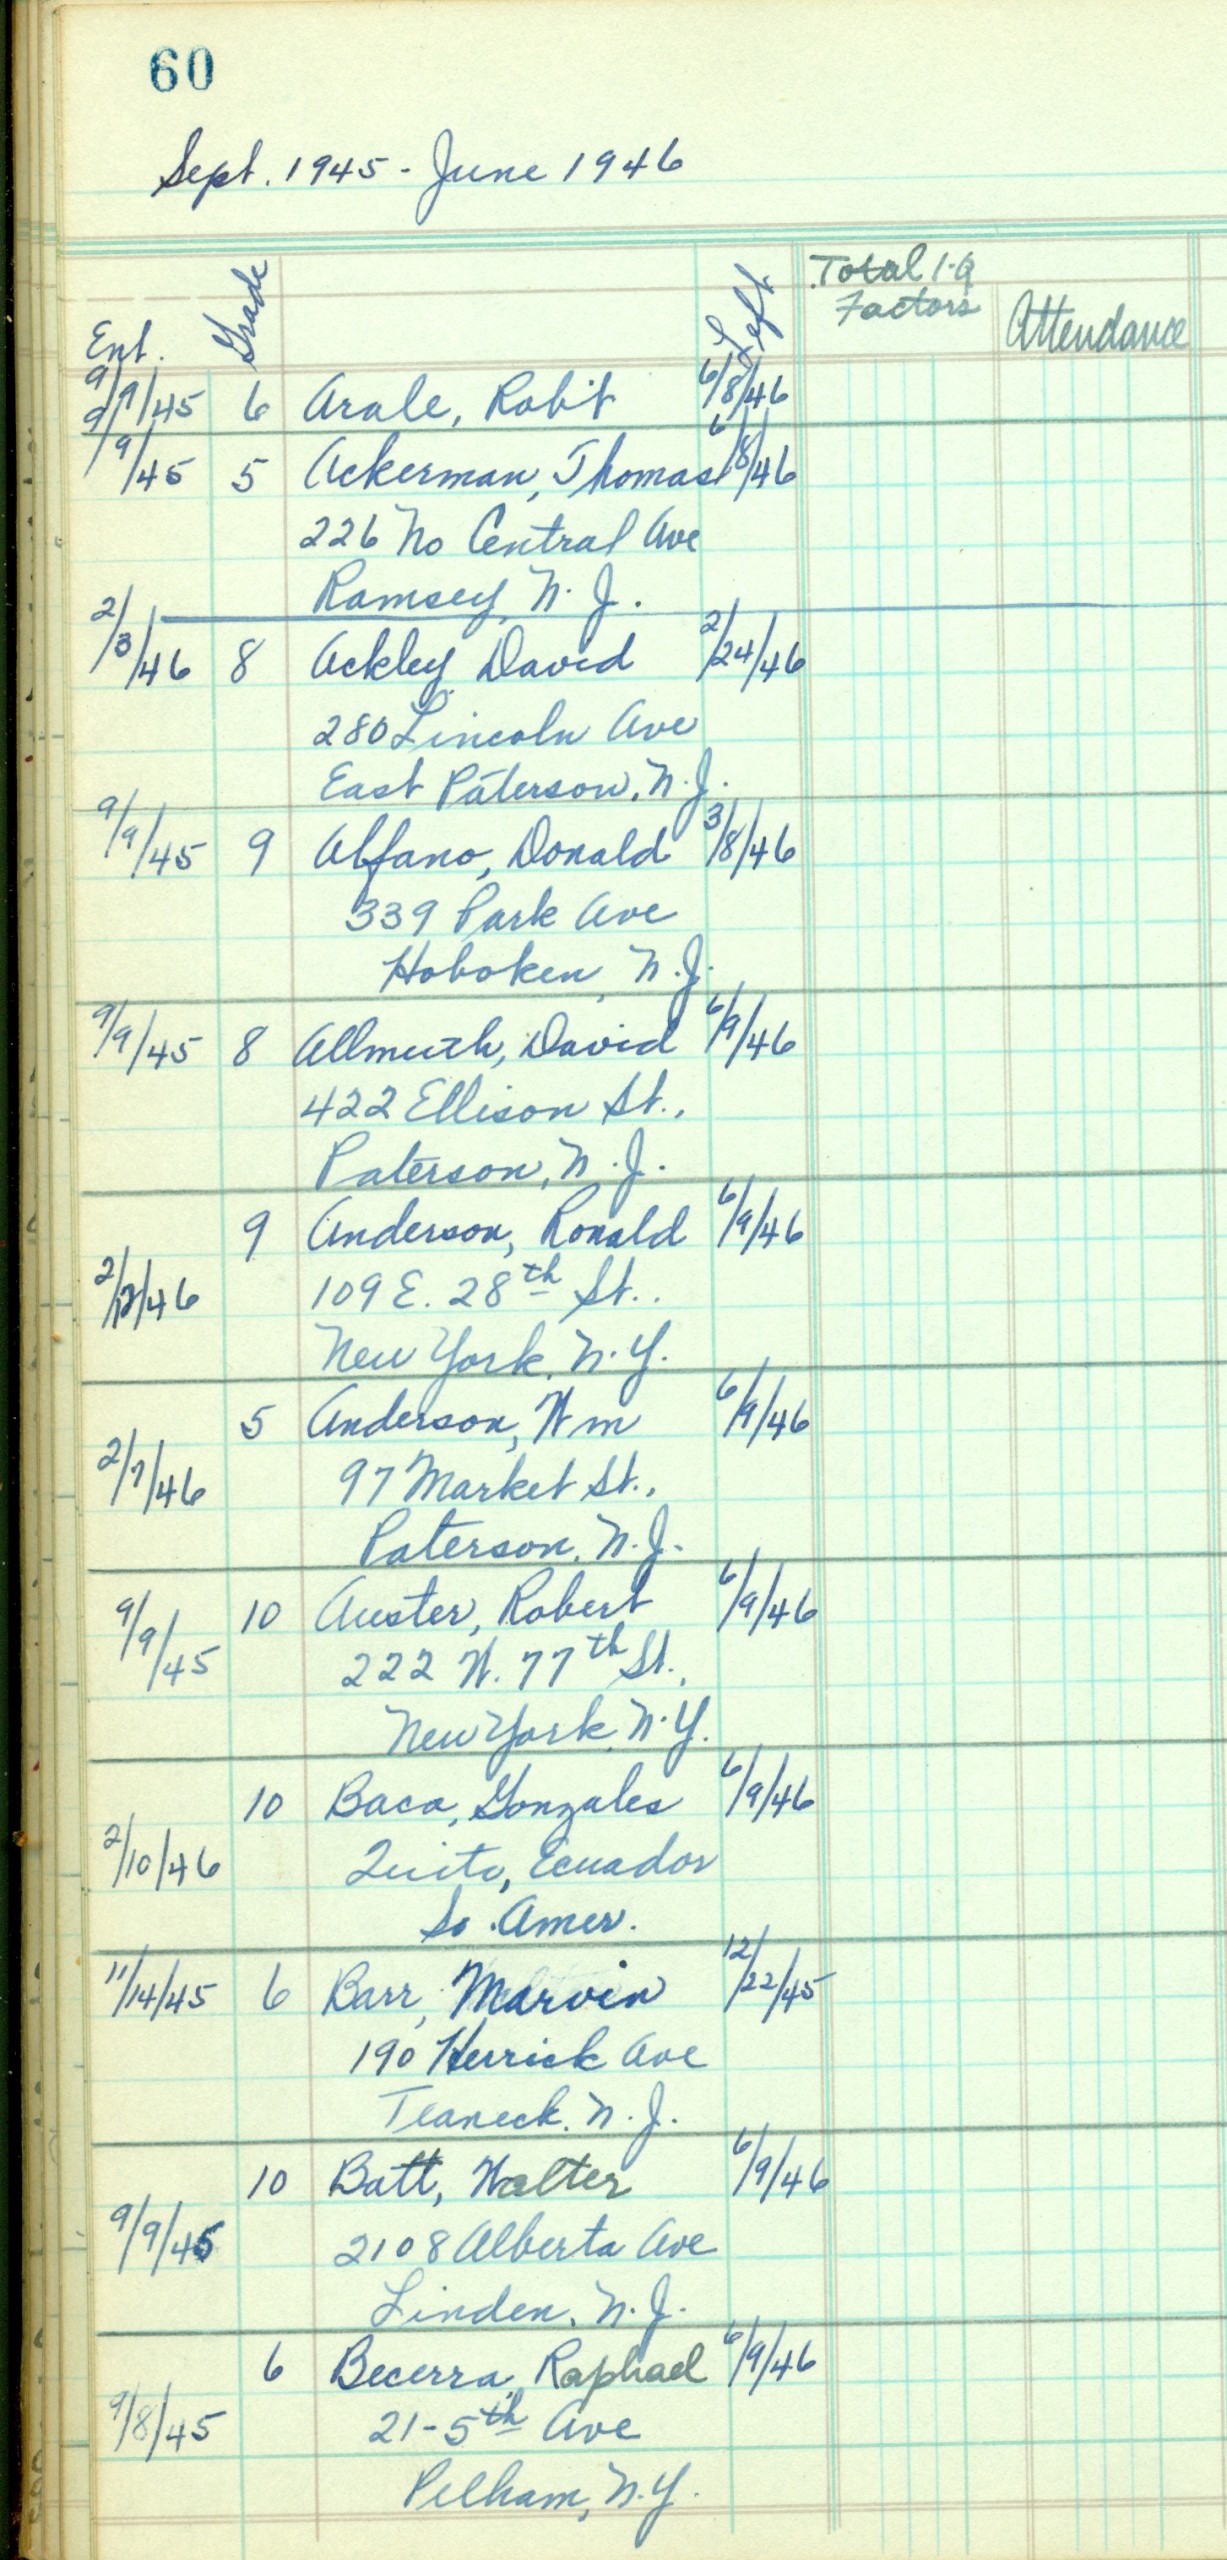 60
Sept. 1945 - June 1946
Ent. Grade Left Total 1-9 Factors Attendance
9/9/45 6 Arale, Robt 6/8/46
9/9/45 5 Ackerman, Thomas 6/8/46
226 No Central Ave
Ramsey, N.J.
2/3/46 8 Ackley David 2/24/46
280 Lincoln Ave
East Paterson, N.J.
9/9/45 9 Alfano, Donald 3/8/46
339 Park Ave
Hoboken, N.J.
9/9/45 8 Allmuth, David 6/9/46
422 Ellison St.,
Paterson, N.J.
9 Anderson, Ronald 6/9/46
2/12/46 109 E. 28th St..
New York, N.Y.
5 Anderson, Wm 6/9/46
2/7/46 97 Market St.,
Paterson, N.J.
9/9/45 10 Auster, Robert 6/9/46
222 W. 77th St.,
New York, N.Y.
10 Baca, Gonzales 6/9/46
2/10/46 Quito, Ecuador
So. Amer.
11/14/45 6 Barr, Marvin 12/22/45
190 Herrick Ave
Teaneck, N.J.
10 Batt, Walter 6/9/46
9/9/45 2108 Alberta Ave
Linden, N.J.
6 Becerra, Raphael 6/9/46
9/8/45 21-5th Ave
Pelham, N.Y.